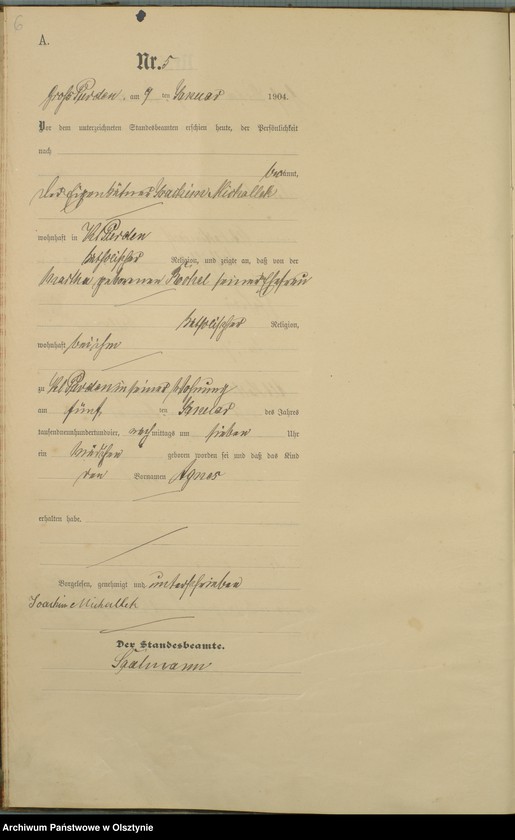 6
A.
Nr. 5
Groß Purden, am 9 ten Januar 1904.
Vor dem unterzeichneten Standesbeamten erschien heute, der Persönlichkeit
nach
bekannt,
der Eigenkätner Joachim Michallek
wohnhaft in Kl Purden
katholischer Religion, und zeigte an, daß von der
Martha, geborenen seiner Ehefrau
katholischer Religion,
wohnhaft bei ihm
zu Kl Purden in seiner Wohnung
am fünf ten Januar des Jahres
tausendneunhundertundvier, nachmittags um sieben Uhr
ein Mädchen geboren worden sei und daß das Kind
den Vornamen Agnes
erhalten habe.
Vorgelesen, genehmigt und unterschrieben
Joachim Michallek
Der Standesbeamte.
Archiwum Państwowe w Olsztynie